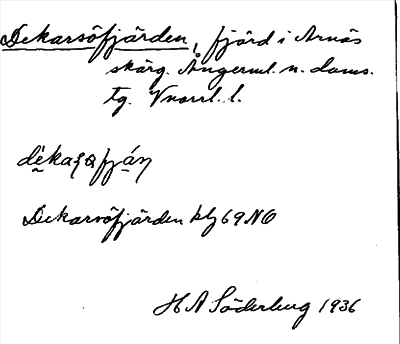 Dekarsöfjärden, fjärd i Arnäs
skärg. Ångerml. n. doms.
tg. Vnorrl. l.
Dekarsöfjärden kbz 69 NO
H A Söderberg 1936